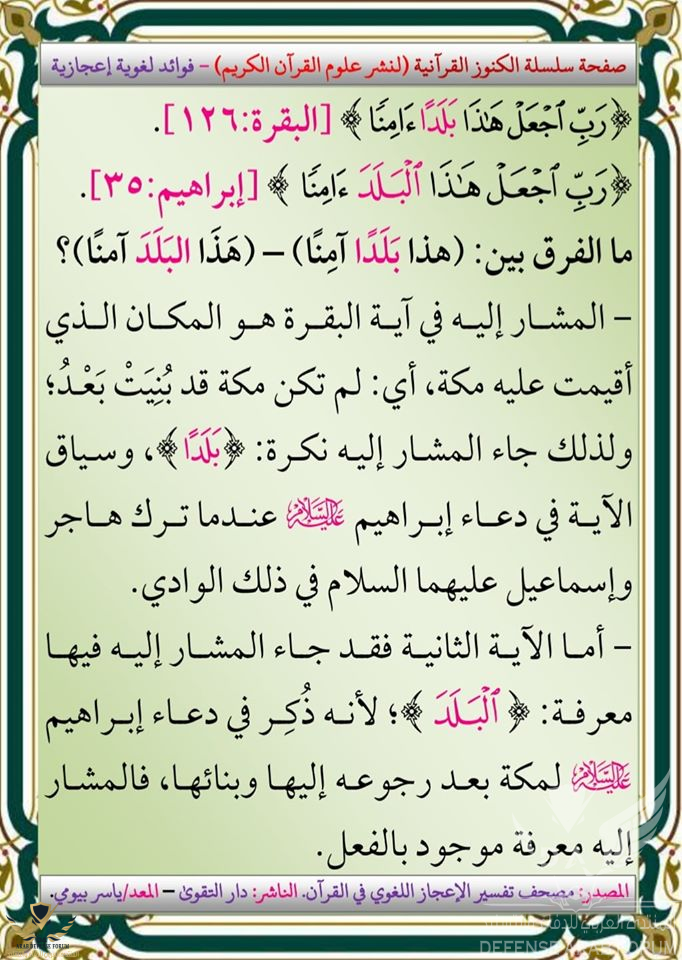 صفحة سلسلة الكنوز القرآنية (لنشر علوم القرآن الكريم) – فوائد لغوية إعجازية
﴿رَبِّ ٱجْعَلْ هَـٰذَا بَلَدًا ءَامِنًا﴾ [البقرة:١٢٦].
﴿رَبِّ ٱجْعَلْ هَـٰذَا ٱلْبَلَدَ ءَامِنًا ﴾ [إبراهيم:٣٥].
ما الفرق بين: (هذا بَلَدًا آمِنًا) – (هَذَا البَلَدَ آمنًا)؟
– المشار إليه في آية البقرة هو المكان الذي
أقيمت عليه مكة، أي: لم تكن مكة قد بُنِيَتْ بَعْدُ؛
ولذلك جاء المشار إليه نكرة: ﴿بَلَدًا﴾، وسياق
الآية في دعاء إبراهيم عليه السلام عندما ترك هاجر
وإسماعيل عليهما السلام في ذلك الوادي.
– أما الآية الثانية فقد جاء المشار إليه فيها
معرفة: ﴿ ٱلْبَلَدَ ﴾؛ لأنه ذُكِر في دعاء إبراهيم
عليه السلام لمكة بعد رجوعه إليها وبنائها، فالمشار
إليه معرفة موجود بالفعل.
المصدر: مصحف تفسير الإعجاز اللغوي في القرآن. الناشر: دار التقوىٰ – المعد/ياسر بيومي.
المنتدى العربي للدفاع والتسليح
DEFENSE ARAB FORUM
ARAB DEFENSE FORUM